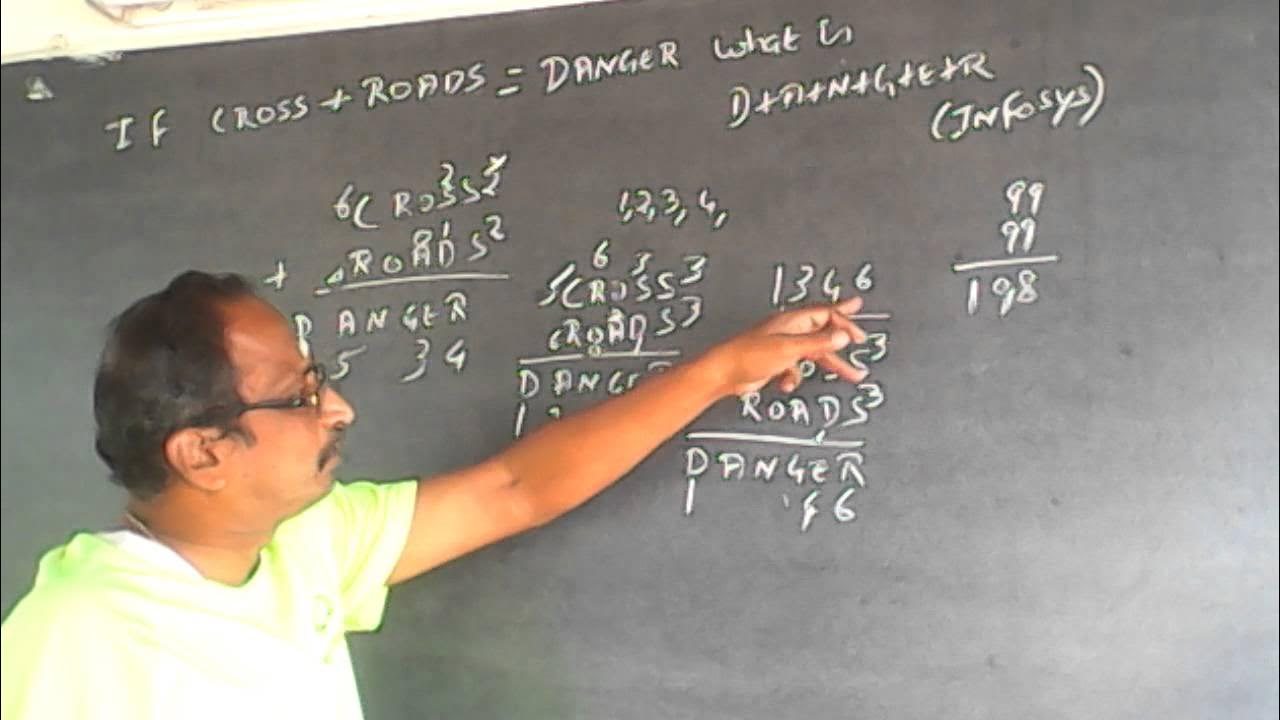 IF CROSS + ROADS = DANGER what is
D+A+N+G+E+R
(INFOSYS)
6CROSS2
+ ROADS2
DANGER
5 34
1,2,3,4,
6 3
5CROSS3
ROADS3
DANGE
1
1346
S3
ROADS3
DANGER
1 6
99
99
198